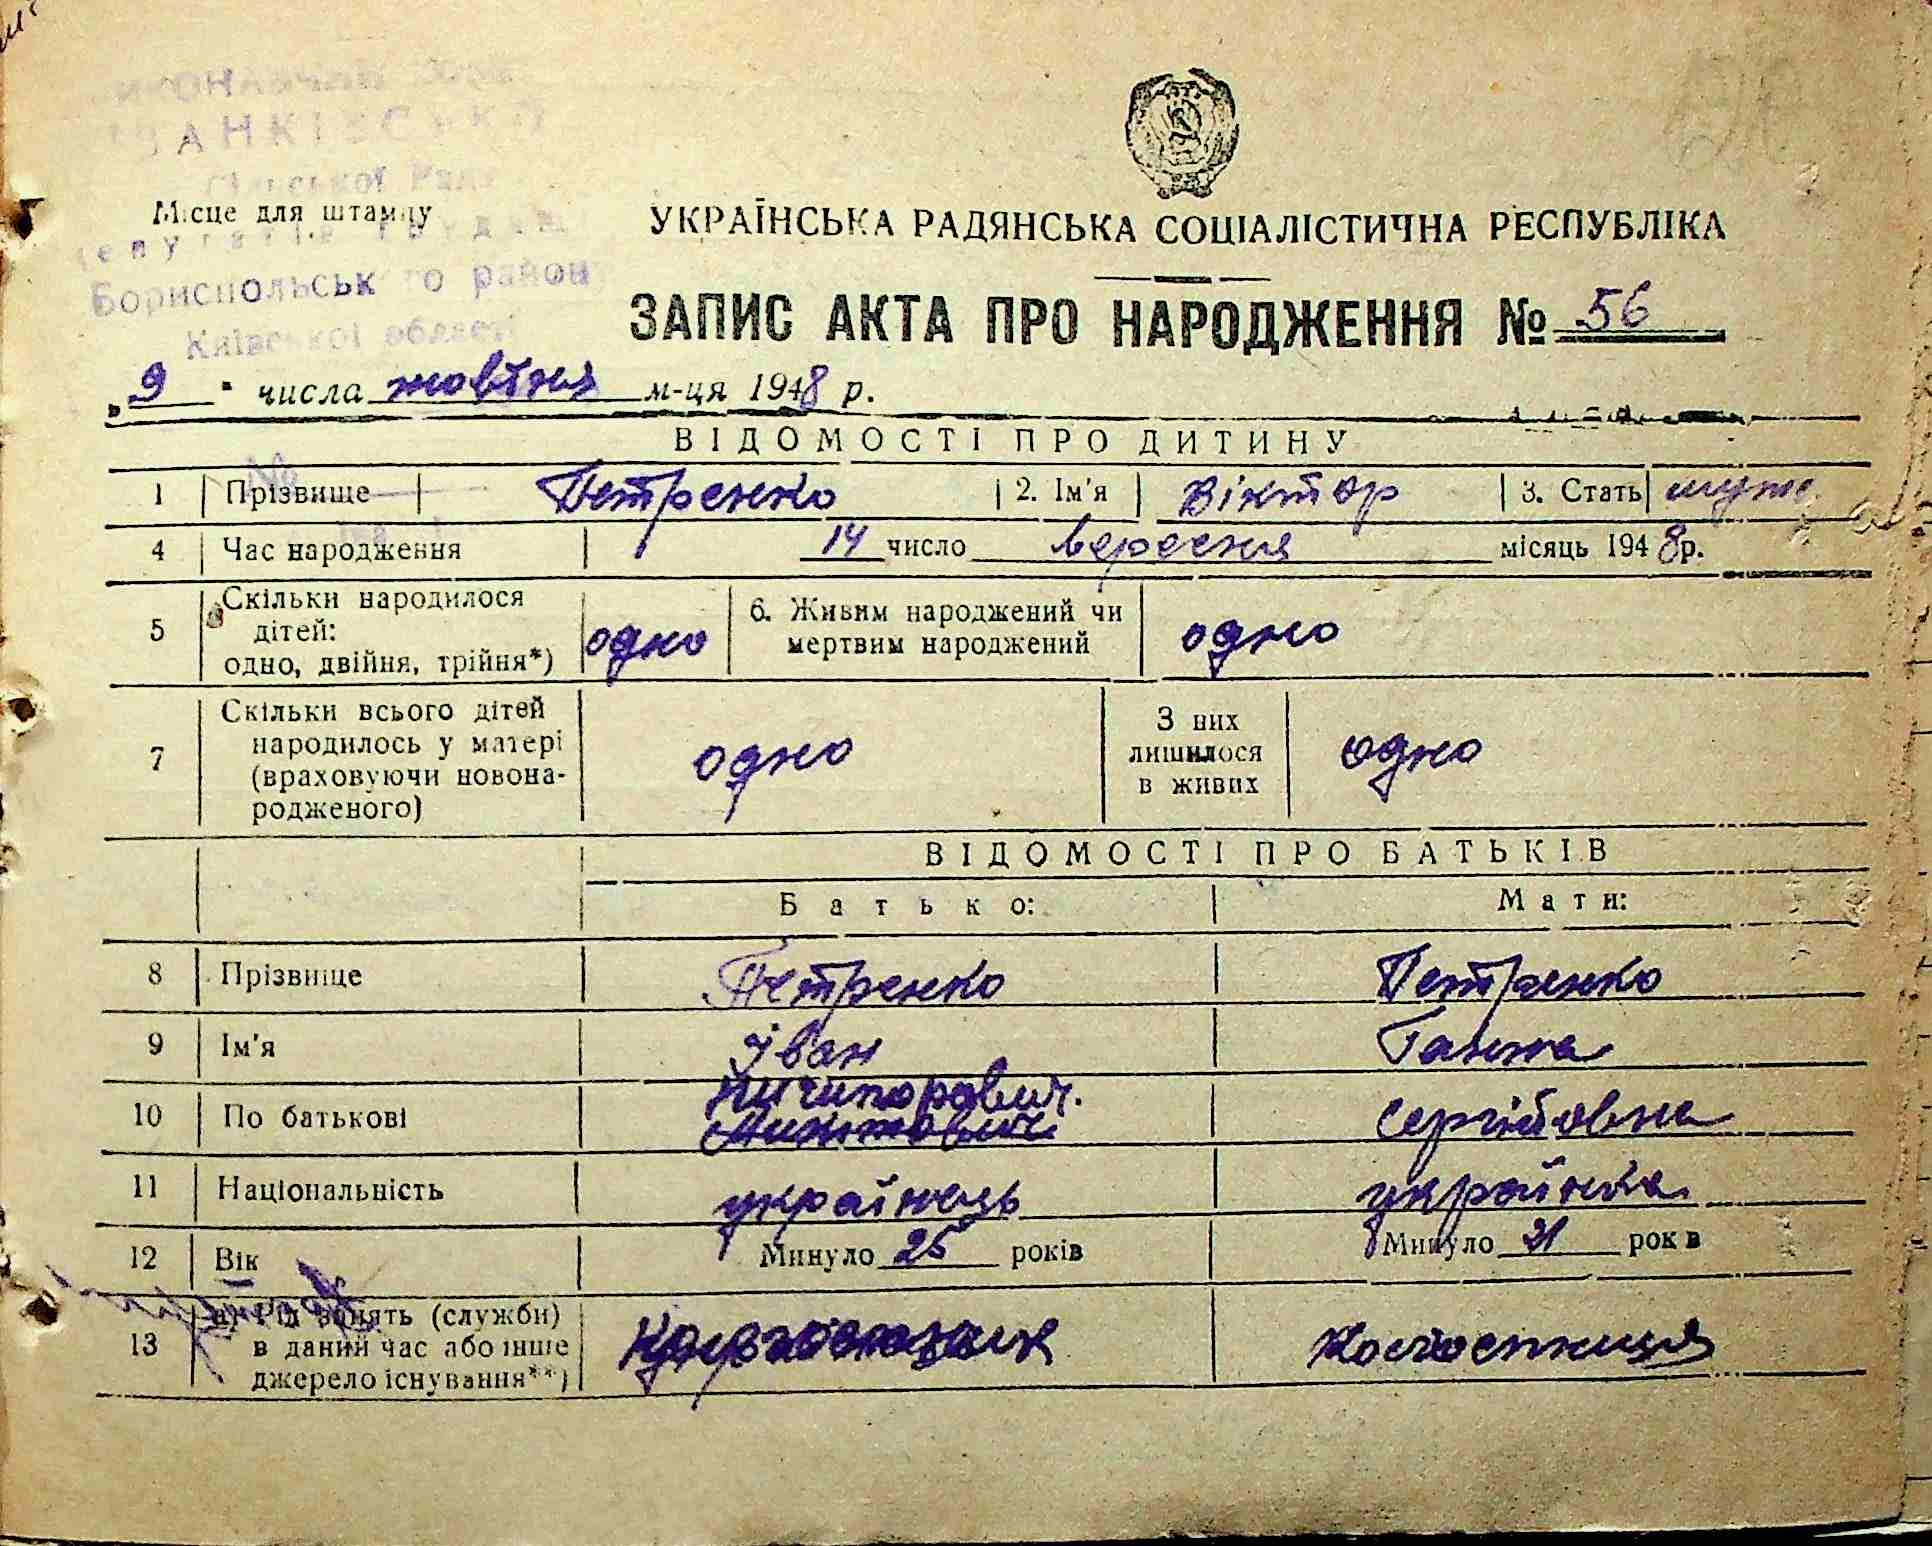 Сільської Рад
Місце для штампу
Бориспольського району
Київської області
УКРАЇНСЬКА РАДЯНСЬКА СОЦІАЛІСТИЧНА РЕСПУБЛІКА
ЗАПИС АКТА ПРО НАРОДЖЕННЯ № 56
„9" числа жовтня м-ця 1948 р.
ВІДОМОСТІ ПРО ДИТИНУ
1 Прізвище Петренко 2. Ім'я Віктор 3. Стать муж
4 Час народження 14 число вересня місяць 1948р.
5 Скільки народилося дітей: одно, двійня, трійня*) одно 6. Живим народжений чи мертвим народжений одно
7 Скільки всього дітей народилось у матері (враховуючи новонародженого) одно З них лишилося в живих одно
ВІДОМОСТІ ПРО БАТЬКІВ
Батько: Мати:
8 Прізвище Петренко Петренко
9 Ім'я Іван Ганна
10 По батькові Ничипорович. Сергійовна
11 Національність українець українка
12 Вік Минуло 25 років Минуло 21 рок в
13 а) Рід занять (служби) в даний час або інше джерело існування**) Колгоспниця